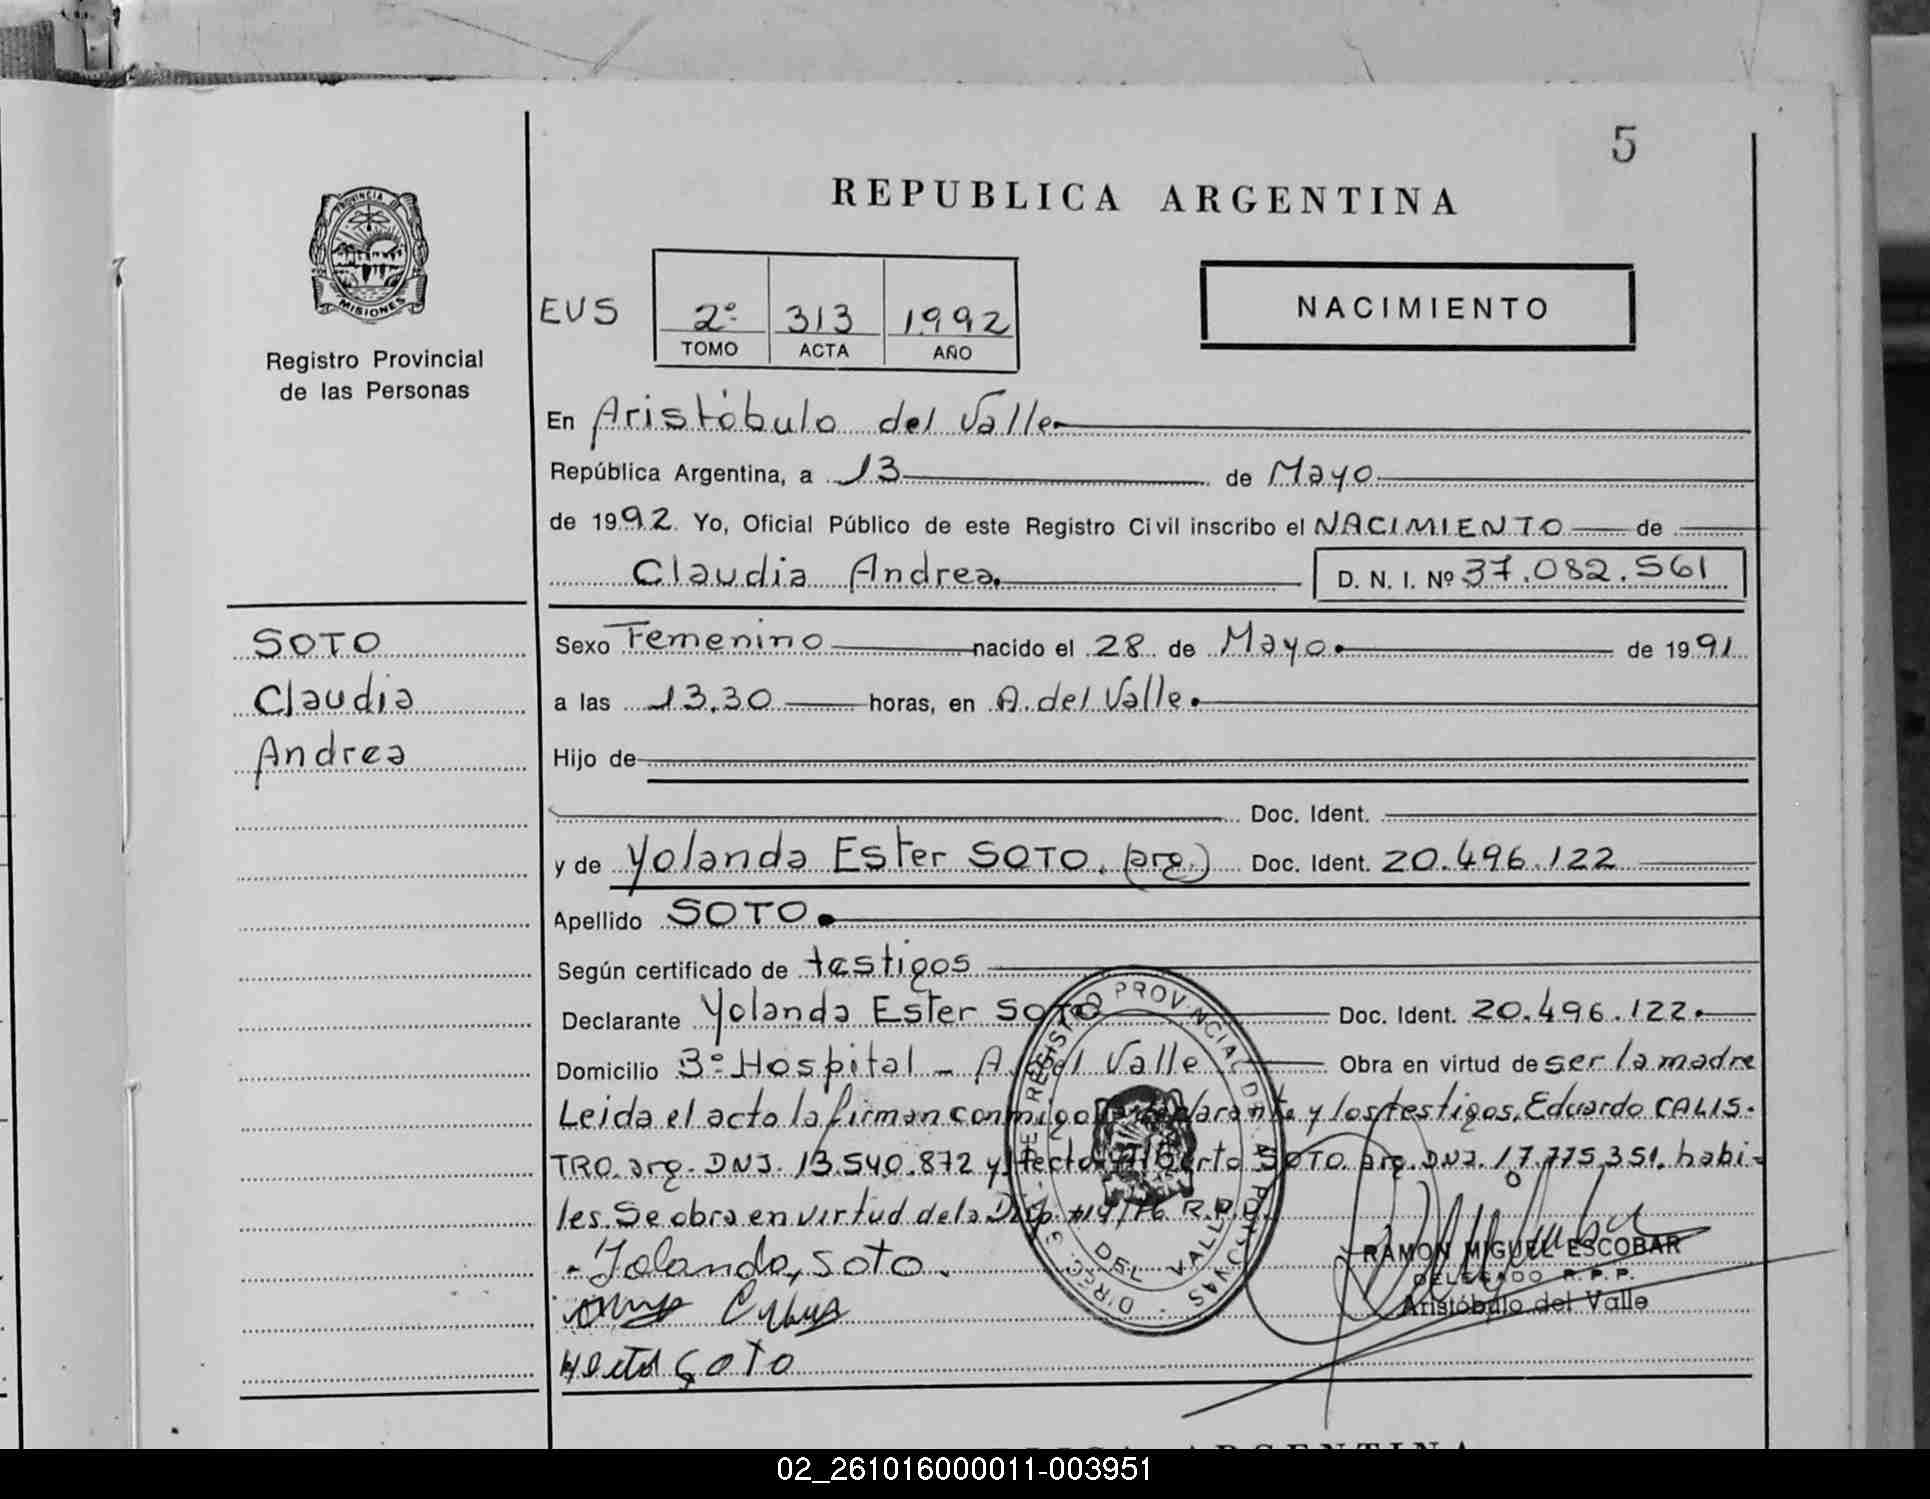 5
REPUBLICA ARGENTINA
PROVINCIA DE
MISIONES
Registro Provincial
de las Personas
EUS
2º 313 1992
TOMO ACTA AÑO
NACIMIENTO
En Aristóbulo del Valle
República Argentina, a 13 de Mayo
de 1992. Yo, Oficial Público de este Registro Civil inscribo el NACIMIENTO de
Claudia Andrea. D. N. I. Nº 37.082.561
SOTO
Claudia
Andrea
Sexo Femenino nacido el 28 de Mayo. de 1991
a las 13.30 horas, en A. del Valle.
Hijo de
Doc. Ident.
y de Yolanda Ester SOTO. (arg.) Doc. Ident. 20.496.122
Apellido SOTO.
Según certificado de testigos
Declarante Yolanda Ester SOTO Doc. Ident. 20.496.122.
Domicilio Bº Hospital - A. del Valle Obra en virtud de ser la madre
Leida el acto la firman conmigo la declarante y los testigos, Eduardo CALIS-
TRO. arg. DNI. 13.540.872 y Hector Alberto SOTO arg. DNI. 17.775.351. habi-
les. Se obra en virtud de la Disp. R.P.P.
- Yolanda, soto.
Hector Soto
RAMON MIGUEL ESCOBAR
DELEGADO R.P.P.
Aristóbulo del Valle
REGISTRO PROVINCIAL DE LAS PERSONAS
DEL VALLE
ARGENTINA
02_261016000011-003951